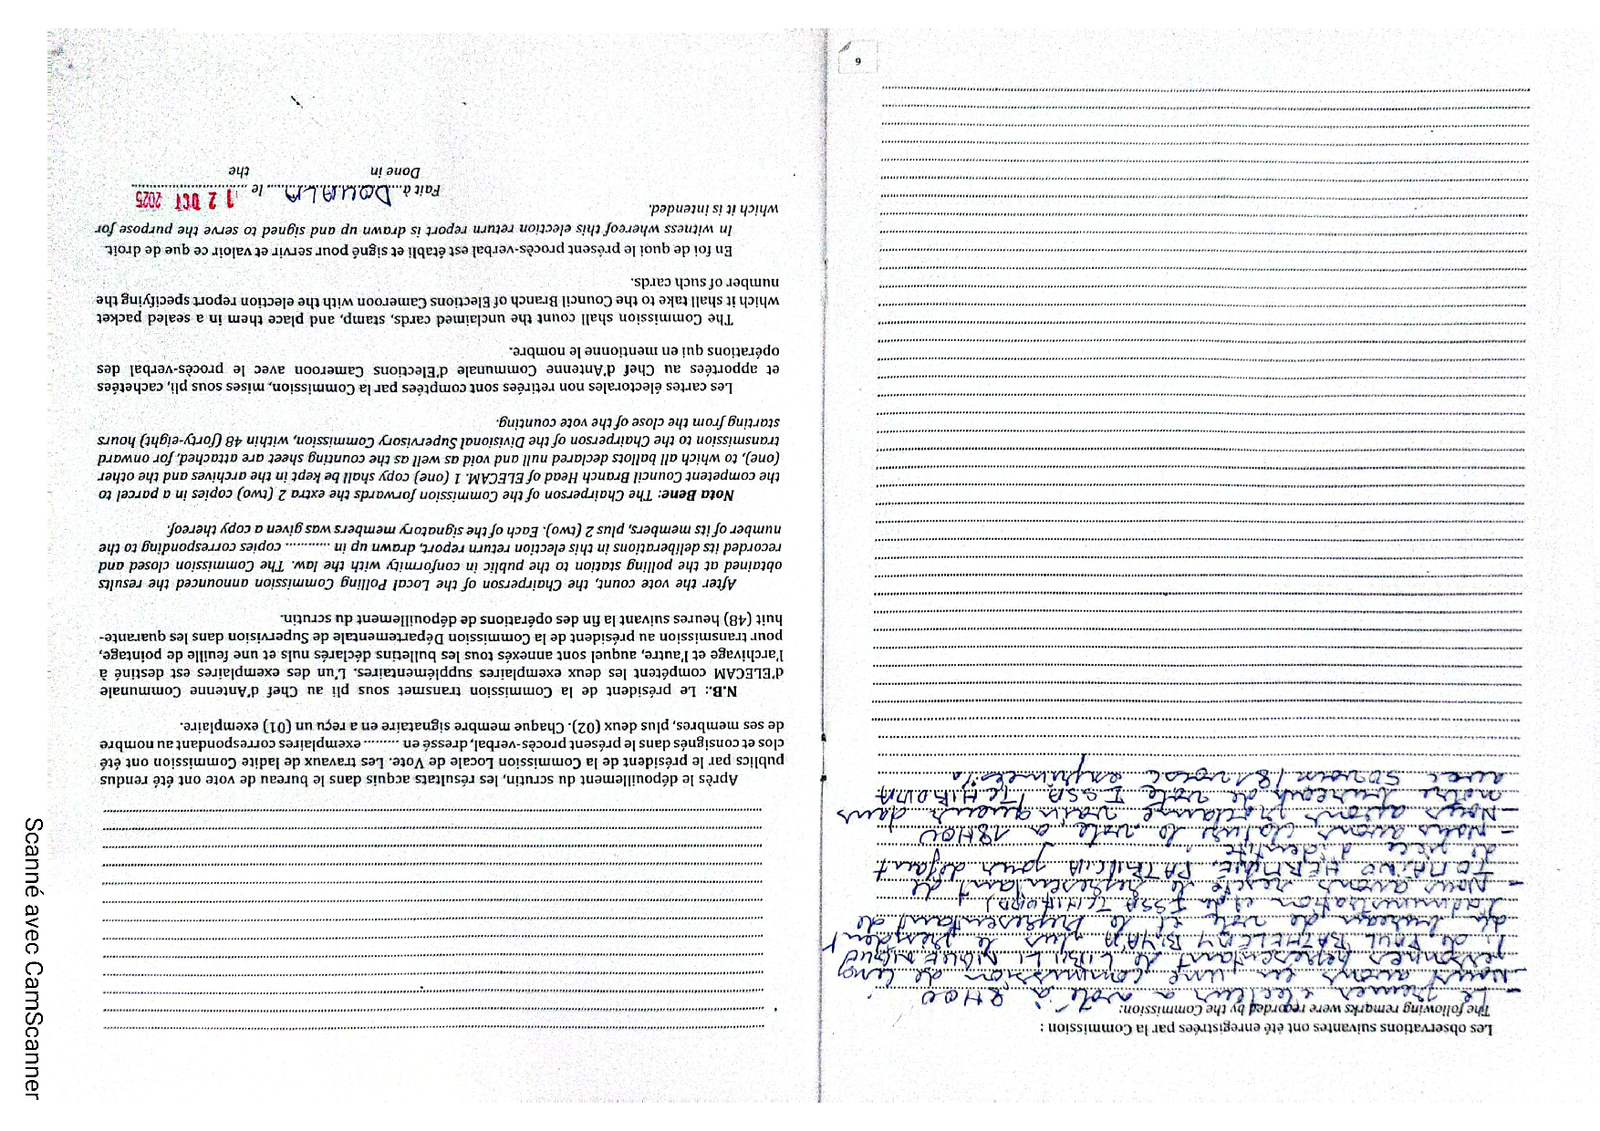 Les observations suivantes ont été enregistrées par la Commission :
The following remarks were recorded by the Commission:
- Le premier électeur a voté à 8H00
- nous avons eu une commission de cinq
personnes representant de LIBII LI NGUE NGUE
de PAUL BATHELEMY BIYA, plus le President
du bureau de vote et le representant de
l'administration et de ISSA TCHIROMA)
- nous avons rejeté le representant de
TOMAINO HERMINE PATRICIA pour défaut
de pièce d'identité.
- nous avons cloturé le vote à 18H00
- Nous avons proclamé vainqueur dans
notre bureau de vote ISSA TCHIROMA
avec 181 voies exprimées
6
Après le dépouillement du scrutin, les résultats acquis dans le bureau de vote ont été rendus
publics par le président de la Commission Locale de Vote. Les travaux de ladite Commission ont été
clos et consignés dans le présent procès-verbal, dressé en ......... exemplaires correspondant au nombre
de ses membres, plus deux (02). Chaque membre signataire en a reçu un (01) exemplaire.
N.B.: Le président de la Commission transmet sous pli au Chef d'Antenne Communale
d'ELECAM compétent les deux exemplaires supplémentaires. L'un des exemplaires est destiné à
l'archivage et l'autre, auquel sont annexés tous les bulletins déclarés nuls et une feuille de pointage,
pour transmission au président de la Commission Départementale de Supervision dans les quarante-
huit (48) heures suivant la fin des opérations de dépouillement du scrutin.
After the vote count, the Chairperson of the Local Polling Commission announced the results
obtained at the polling station to the public in conformity with the law. The Commission closed and
recorded its deliberations in this election return report, drawn up in ............ copies corresponding to the
number of its members, plus 2 (two). Each of the signatory members was given a copy thereof.
Nota Bene: The Chairperson of the Commission forwards the extra 2 (two) copies in a parcel to
the competent Council Branch Head of ELECAM. 1 (one) copy shall be kept in the archives and the other
(one), to which all ballots declared null and void as well as the counting sheet are attached, for onward
transmission to the Chairperson of the Divisional Supervisory Commission, within 48 (forty-eight) hours
starting from the close of the vote counting.
Les cartes électorales non retirées sont comptées par la Commission, mises sous pli, cachetées
et apportées au Chef d'Antenne Communale d'Elections Cameroon avec le procès-verbal des
opérations qui en mentionne le nombre.
The Commission shall count the unclaimed cards, stamp, and place them in a sealed packet
which it shall take to the Council Branch of Elections Cameroon with the election report specifying the
number of such cards.
En foi de quoi le présent procès-verbal est établi et signé pour servir et valoir ce que de droit.
In witness whereof this election return report is drawn up and signed to serve the purpose for
which it is intended.
Fait à DOUALA le 12 OCT 2025
Done in the
Scanné avec CamScanner